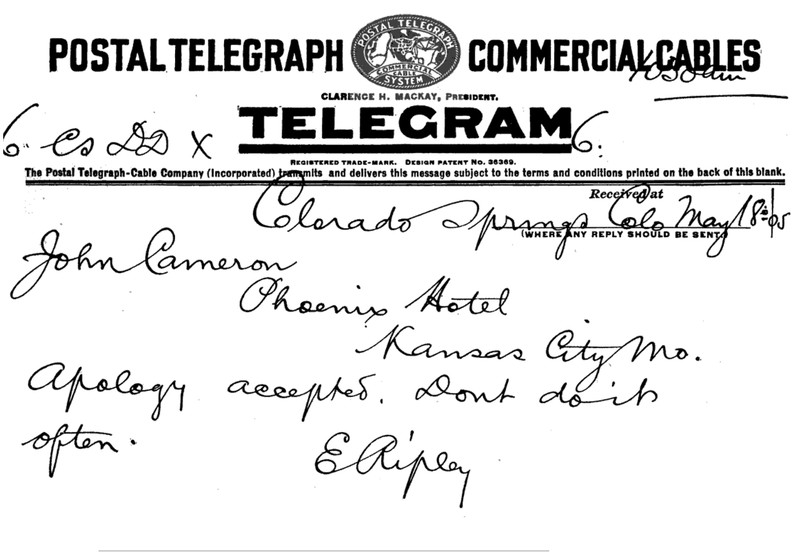 POSTAL TELEGRAPH COMMERCIAL CABLES
POSTAL TELEGRAPH
COMMERCIAL CABLE SYSTEM
CLARENCE H. MACKAY, PRESIDENT.
1030am
TELEGRAM
6 Cs DD X 6.
REGISTERED TRADE-MARK. DESIGN PATENT No. 36369.
The Postal Telegraph-Cable Company (Incorporated) transmits and delivers this message subject to the terms and conditions printed on the back of this blank.
Received at
Colorado Springs Colo May 18 05
(WHERE ANY REPLY SHOULD BE SENT)
John Cameron
Phoenix Hotel
Kansas City Mo.
Apology accepted. Dont do it
often.
E Ripley